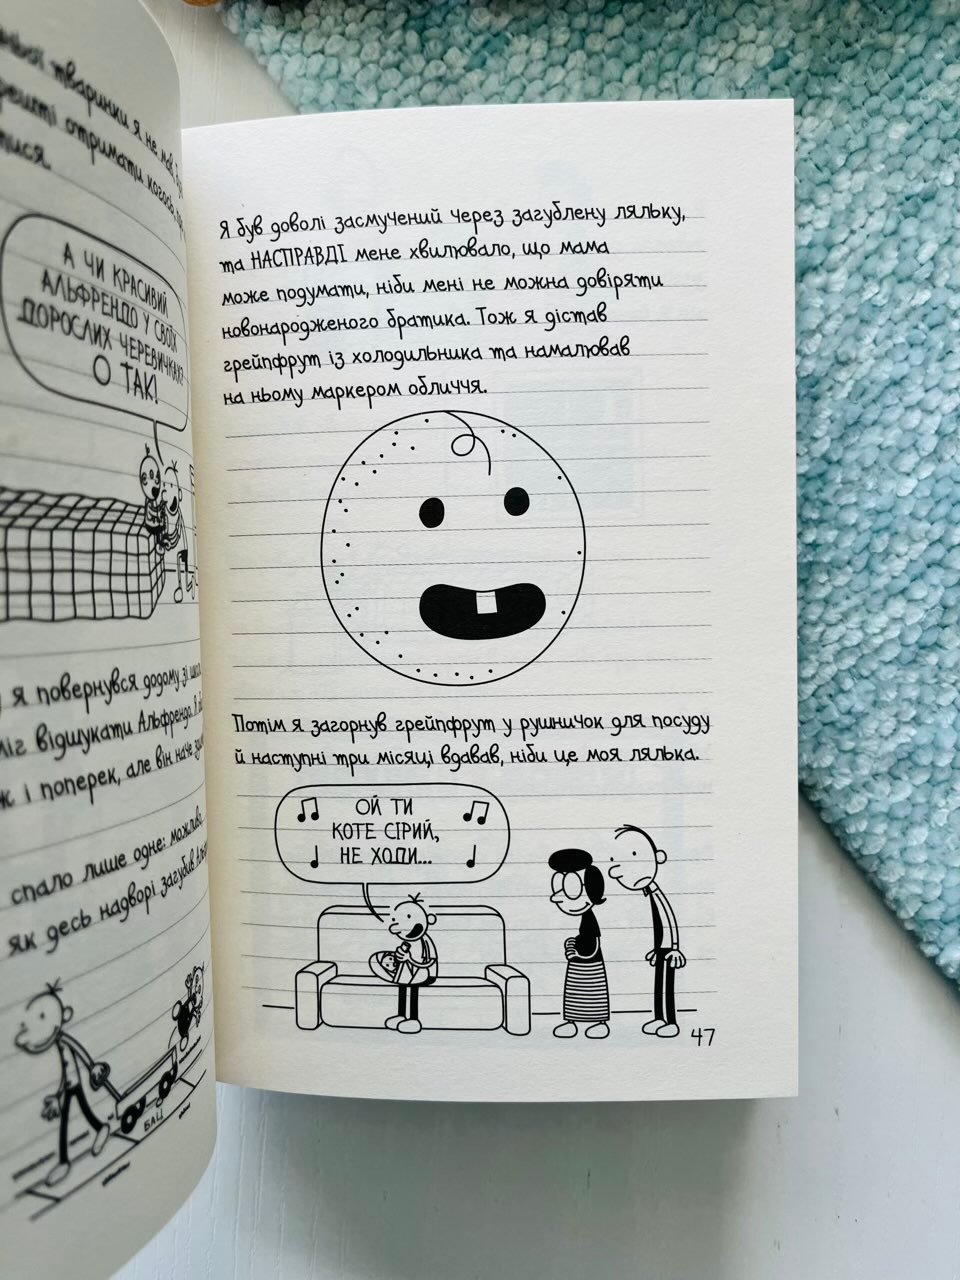 ньої тваринки я не мав,
отримати когось,
А ЧИ КРАСИВИЙ
АЛЬФРЕНДО У СВОЇХ
ДОРОСЛИХ ЧЕРЕВИЧКАХ?
О ТАК!
я повернувся додому зі
відшукати Альфрендо.
і поперек, але він наче
спало лише одне: можливо,
як десь надворі загубив
БАЦ
Я був доволі засмучений через загублену ляльку,
та НАСПРАВДІ мене хвилювало, що мама
може подумати, ніби мені не можна довіряти
новонародженого братика. Тож я дістав
грейпфрут із холодильника та намалював
на ньому маркером обличчя.
Потім я загорнув грейпфрут у рушничок для посуду
й наступні три місяці вдавав, ніби це моя лялька.
ОЙ ТИ
КОТЕ СІРИЙ,
НЕ ХОДИ...
47